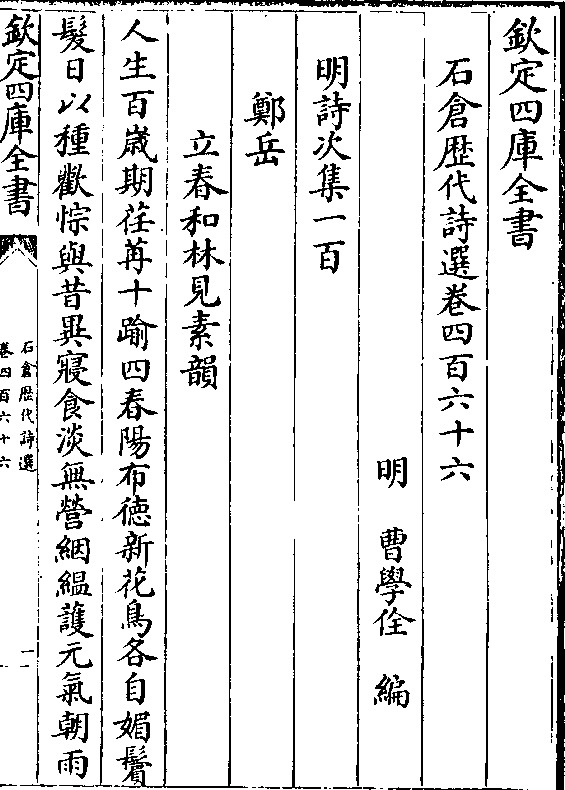 欽定四庫全書
石倉歴代詩選卷四百六十六
明 曹學佺 編
明詩次集一百
鄭岳
立春和林見素韻
人生百歳期荏苒十踰四春陽布徳新花鳥各自媚鬢
髮日以種歡悰與昔異寢食淡無營絪緼護元氣朝雨
欽定四庫全書
石倉歴代詩選
卷四百六十六
一